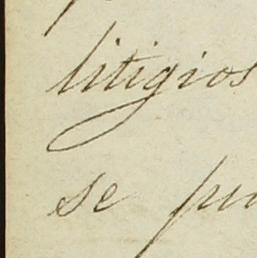 litigios
se